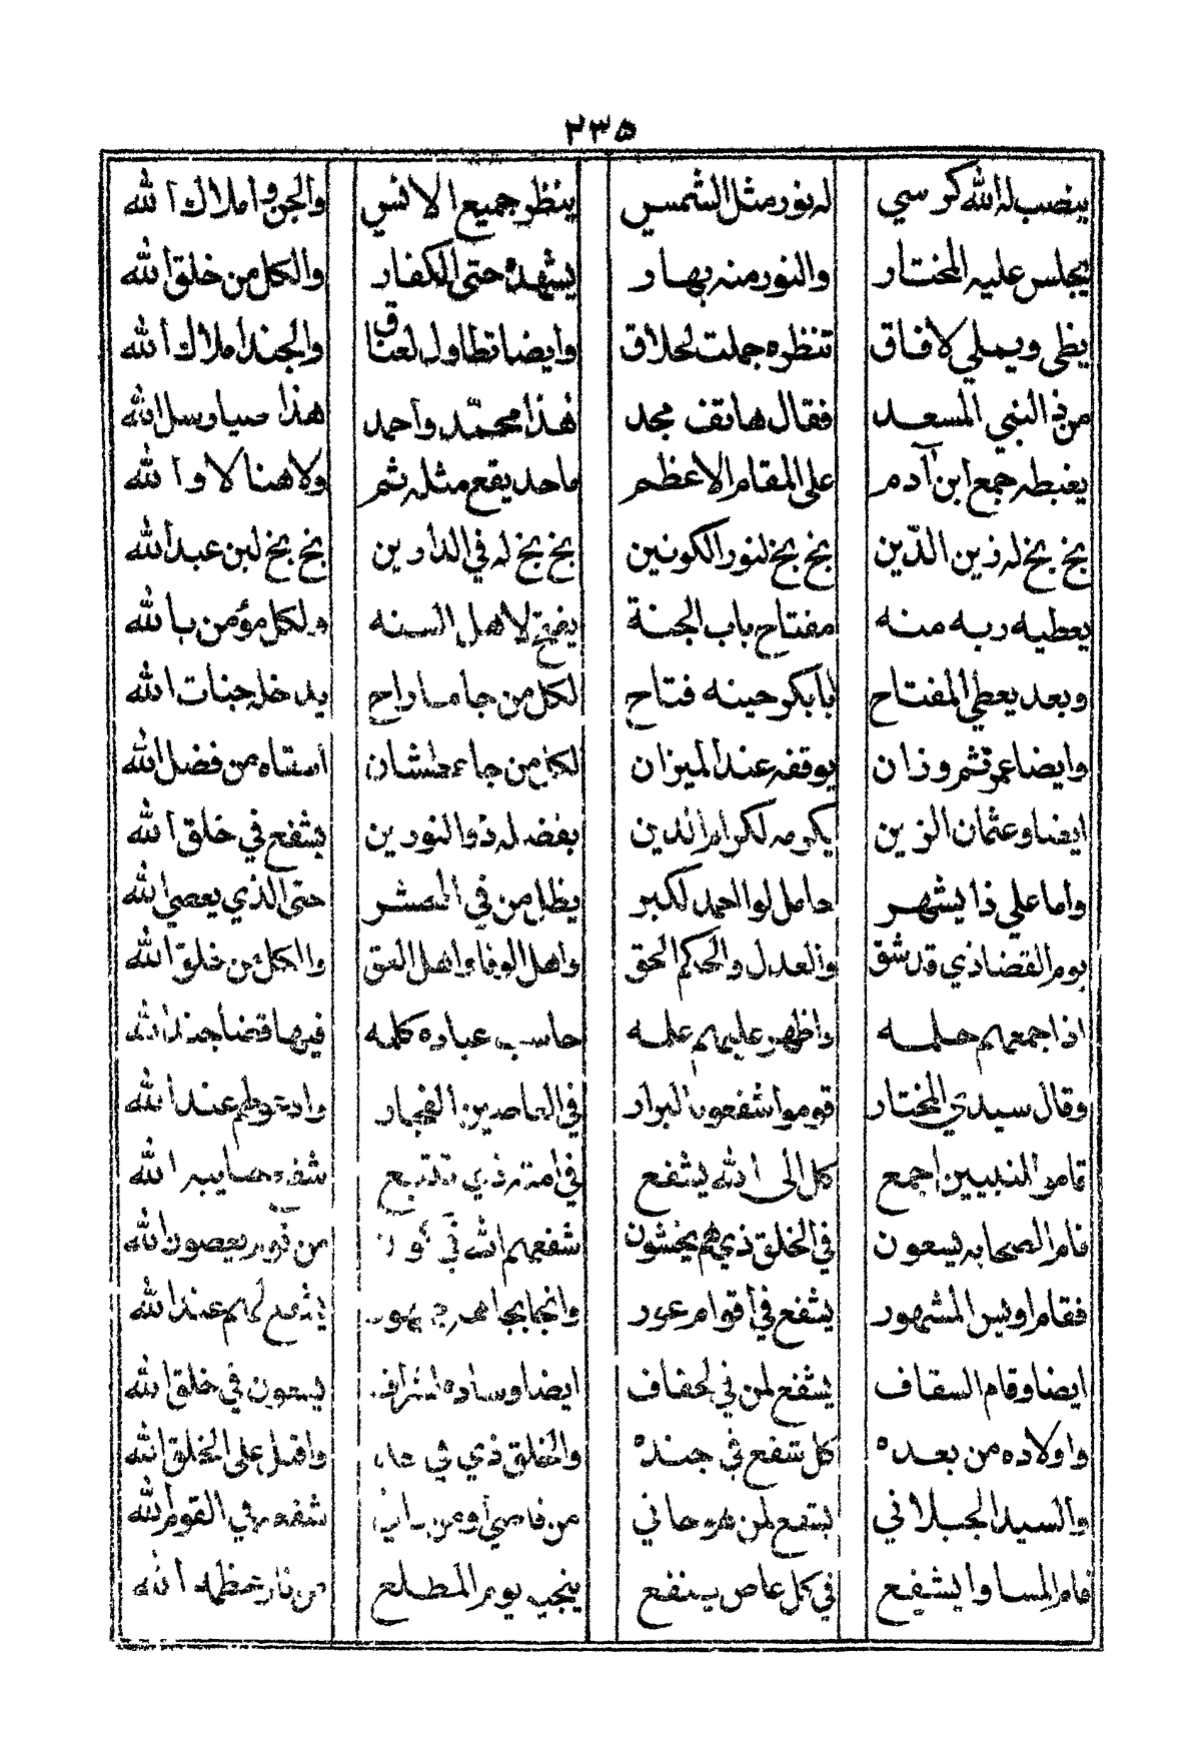 ٢٣٥
ينصب له الله كرسي له نور مثل الشمس ينظر جميع الانس والجن واملاك الله
يجلس عليه المختار والنور منه بهار يشهده حتى الكفار والكل من خلق الله
يظي ويملي لافاق تنظره جملت لخلاق وأيضا تطاول لعناق والجند أملاك الله
من ذي النبي المسعد فقال هاتف مجد هذا محمّد وأحمد هذا صيا رسل الله
يغبطه جمع ابن آدم على المقام الاعظم ما حد يقع مثله ثم ولا هنا لا والله
بخ بخ له زين الدّين بخ بخ لنور الكونين بخ بخ له في الدارين بخ بخ لبن عبد الله
يعطيه ربه منه مفتاح باب الجنة يفتح لاهل السنه ولكل مؤمن بالله
وبعد يعطي المفتاح بابكر حينه فتاح لكل من جا ما راح يدخله جنات الله
وايضا عمر ثم وزان يوقفه عند الميزان لكل من جا عطشان أسقاه من فضل الله
ايضا وعثمان الزين يكرمه لكرام الدين بفضله ذو النورين يشفع في خلق الله
واما علي ذا يشهر حامل لوا الحمد لكبر يظلل من في المحشر حتى الذي يعصي الله
يوم القضا ذي قد شق والعدل والحكم الحق واهل الوفا واهل العق والكل من خلق الله
اذا جمعهم حلمه واظهر عليهم علمه حاسب عباده كلمه فيها قضا جند الله
وقال سيدي المختار قوموا اشفعوا البرار في العاصين الفجار وادعو لهم عند الله
قامو النبيين اجمع كل الى الله يشفع في امته ذي تتبع
قام الصحابه يسعون في الخلق ذي هم يخشون شفعهم الله في يعصون الله
فقام اويس المشهور يشفع في أقوام عور يشفع لهم عند الله
ايضا وقام السقاف يشفع لمن في لحقاف ايضا وساده يسعون في خلق الله
واولاده من بعده كل شفع في جنده والخلق ذي في واقبل على الخلق الله
والسيد الجيلاني يشفع لمن هو جاني من قاصي ومن في القوم الله
قام المساوا يشفع في كل عاص ينفع ينجيه يوم المطلع من نار الله